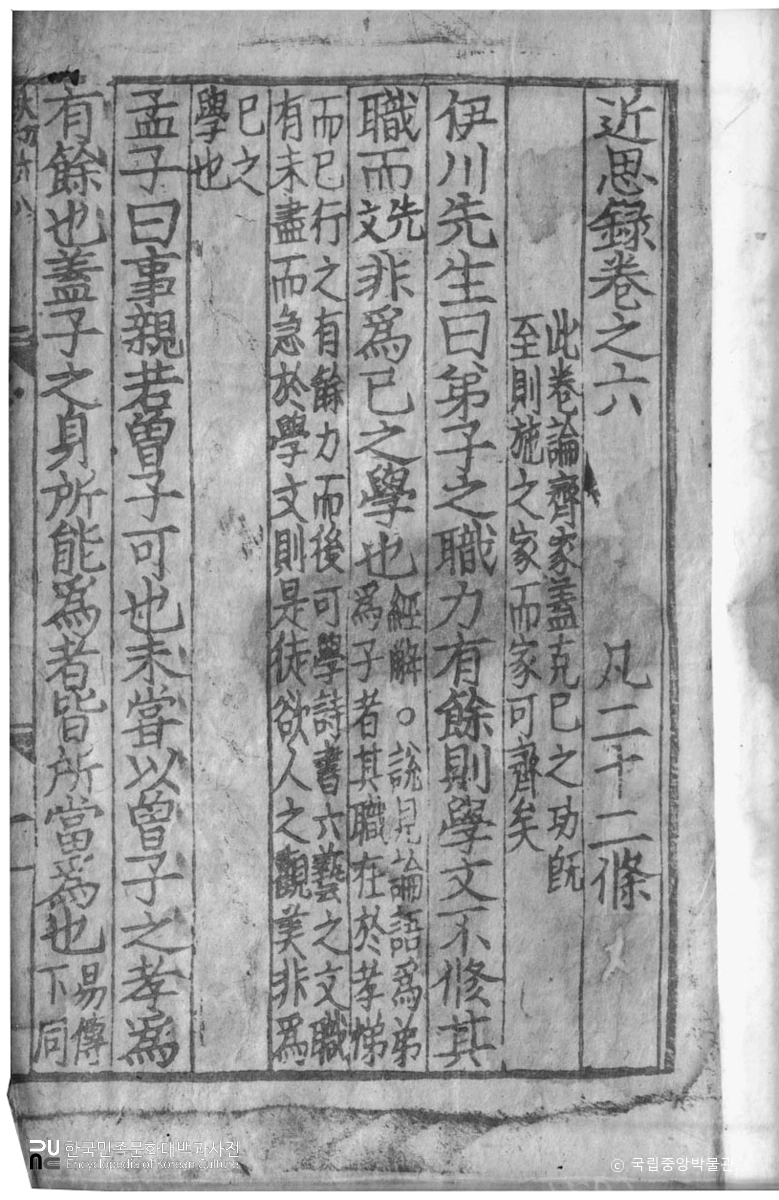 近思錄卷之六 凡二十二條
此卷論齊家蓋克已之功旣
至則施之家而家可齊矣
伊川先生曰弟子之職力有餘則學文不修其
職而先文非爲已之學也經解○說見論語爲弟
爲子者其職在於孝悌
而已行之有餘力而後可學詩書六藝之文職
有未盡而急於學文則是徒欲人之觀美非爲
已之
學也
孟子曰事親若曾子可也未嘗以曾子之孝爲
有餘也蓋子之身所能爲者皆所當爲也易傳
下同
한국민족문화대백과사전
Encyclopedia of Korean Culture
© 국립중앙박물관